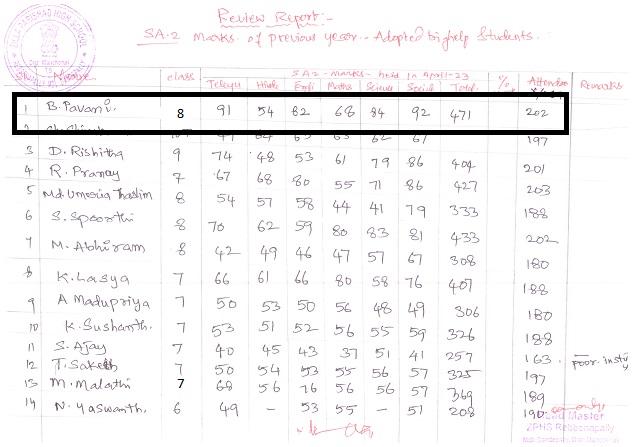 Review Report:-
SA-2 Marks of previous year - Adopted bighelp Students.
ZILLA PARISHAD HIGH SCHOOL
SA-2 - marks - held in April-23
Name class Telugu Hindi Engli Maths Science Social Total % Attendan Remarks
1 B. Pavani. 8 91 54 82 68 84 92 471 202
2 197
3 D. Rishitha 9 74 48 53 61 79 86 404 201
4 R. Pranay 7 67 68 80 55 71 86 427 203
5 Md. Umesia Thaslim 8 54 57 58 44 41 79 333 188
6 S. Spoorthi 8 70 62 59 80 83 81 433 202
7 M. Abhiram 8 42 49 46 47 57 67 308 180
8 K. Lasya 7 66 61 66 80 58 76 407 188
9 A Madupriya 7 50 53 50 56 48 49 306 180
10 K. Sushanth. 7 53 51 52 56 55 59 326 188
11 S. Ajay 7 40 45 43 37 51 41 257 163. poor insty
12 T. Saketh 7 50 54 53 55 56 57 325 197
13 M. Malathi 7 68 56 76 56 56 57 369 189
14 N. Yaswanth. 6 49 - 53 55 - 51 208 190
Head Master
ZPHS Rebbenapally